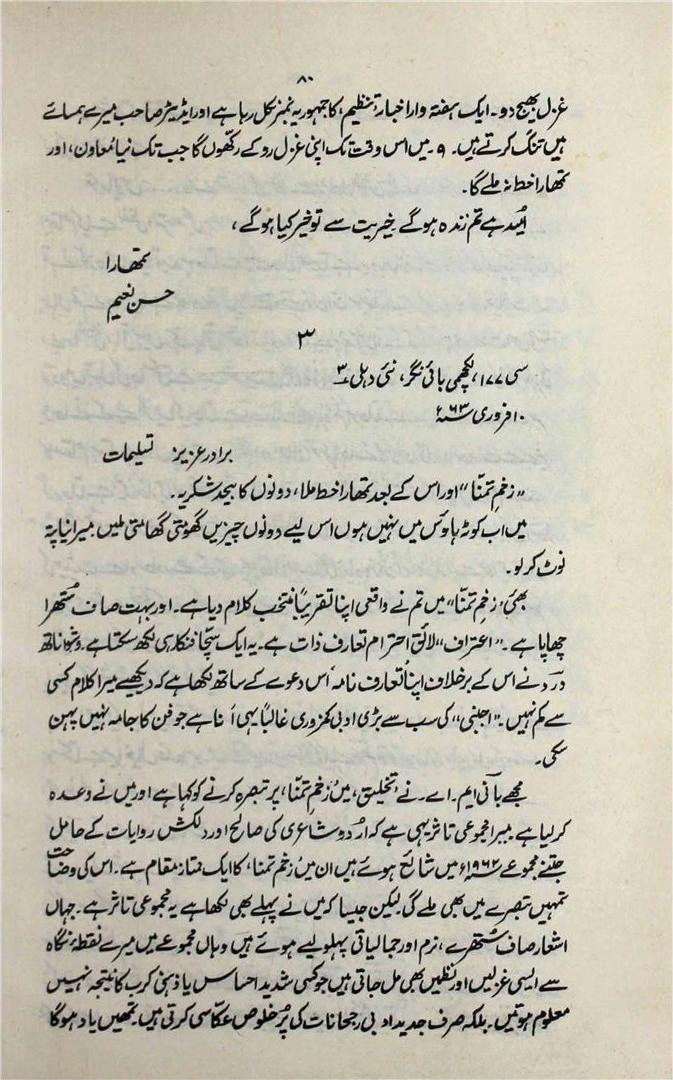 ۸۰
غزل بھیج دو۔ ایک ہفتہ وار اخبار ’تنظیم‘ کا جمہوریہ نمبر نکل رہا ہے اور ایڈیٹر صاحب میرے ہمسائے
ہیں تنگ کرتے ہیں۔ ۹ میں اس وقت تک اپنی غزل روکے رکھوں گا جب تک نیا ’معاون‘ اور
تمھارا خط نہ ملے گا۔
اُمید ہے تم زندہ ہوگے خیریت سے تو خیر کیا ہوگے،
تمھارا
حسن نعیم
۳
سی ۱۷۷، لکچھمی بائی نگر، نئی دہلی ۳
۱۰ فروری ۶۳ء
برادر عزیز تسلیمات
”زخمِ تمنّا“ اور اس کے بعد تمھارا خط ملا، دونوں کا بیحد شکریہ۔
میں اب کوٹہ ہاؤس میں نہیں ہوں اس لیے دونوں چیزیں گھومتی گھامتی ملیں۔ میرا نیا پتہ
نوٹ کر لو۔
بھئی ’زخمِ تمنّا‘ میں تم نے واقعی اپنا تقریباً منتخب کلام دیا ہے۔ اور بہت صاف ستھرا
چھاپا ہے۔ ”اعتراف“ لائق احترام تعارف ذات ہے۔ یہ ایک سچّا فنکار ہی لکھ سکتا ہے۔ وشواناتھ
درد نے اس کے برخلاف اپنا تعارف نامہ اس دعوے کے ساتھ لکھا ہے کہ دیکھیے میرا کلام کسی
سے کم نہیں۔ ”اجنبی“ کی سب سے بڑی ادبی کمزوری غالباً یہی اَنا ہے جو فن کا جامہ نہیں پہن
سکی۔
مجھے بآنی ایم۔ اے۔ نے ’تخلیق‘ میں ’زخمِ تمنّا‘ پر تبصرہ کرنے کو کہا ہے اور میں نے وعدہ
کر لیا ہے۔ میرا مجموعی تاثر یہی ہے کہ اردو شاعری کی صالح اور دلکش روایات کے حامل
جتنے مجموعے ۱۹۶۲ء میں شائع ہوئے ہیں ان میں ’زخمِ تمنا‘ کا ایک ممتاز مقام ہے۔ اس کی وضاحت
تمہیں تبصرے میں بھی ملے گی۔ لیکن جیسا کہ میں نے پہلے بھی لکھا ہے یہ مجموعی تاثر ہے۔ جہاں
اشعار صاف ستھرے، نرم اور جمالیاتی پہلو لیے ہوئے ہیں وہاں مجموعے میں میرے نقطۂ نگاہ
سے ایسی غزلیں اور نظمیں بھی مل جاتی ہیں جو کسی شدید احساس یا ذہنی کرب کا نتیجہ نہیں
معلوم ہوتیں۔ بلکہ صرف جدید ادبی رجحانات کی پُر خلوص عکاسی کرتی ہیں۔ تمھیں یاد ہوگا